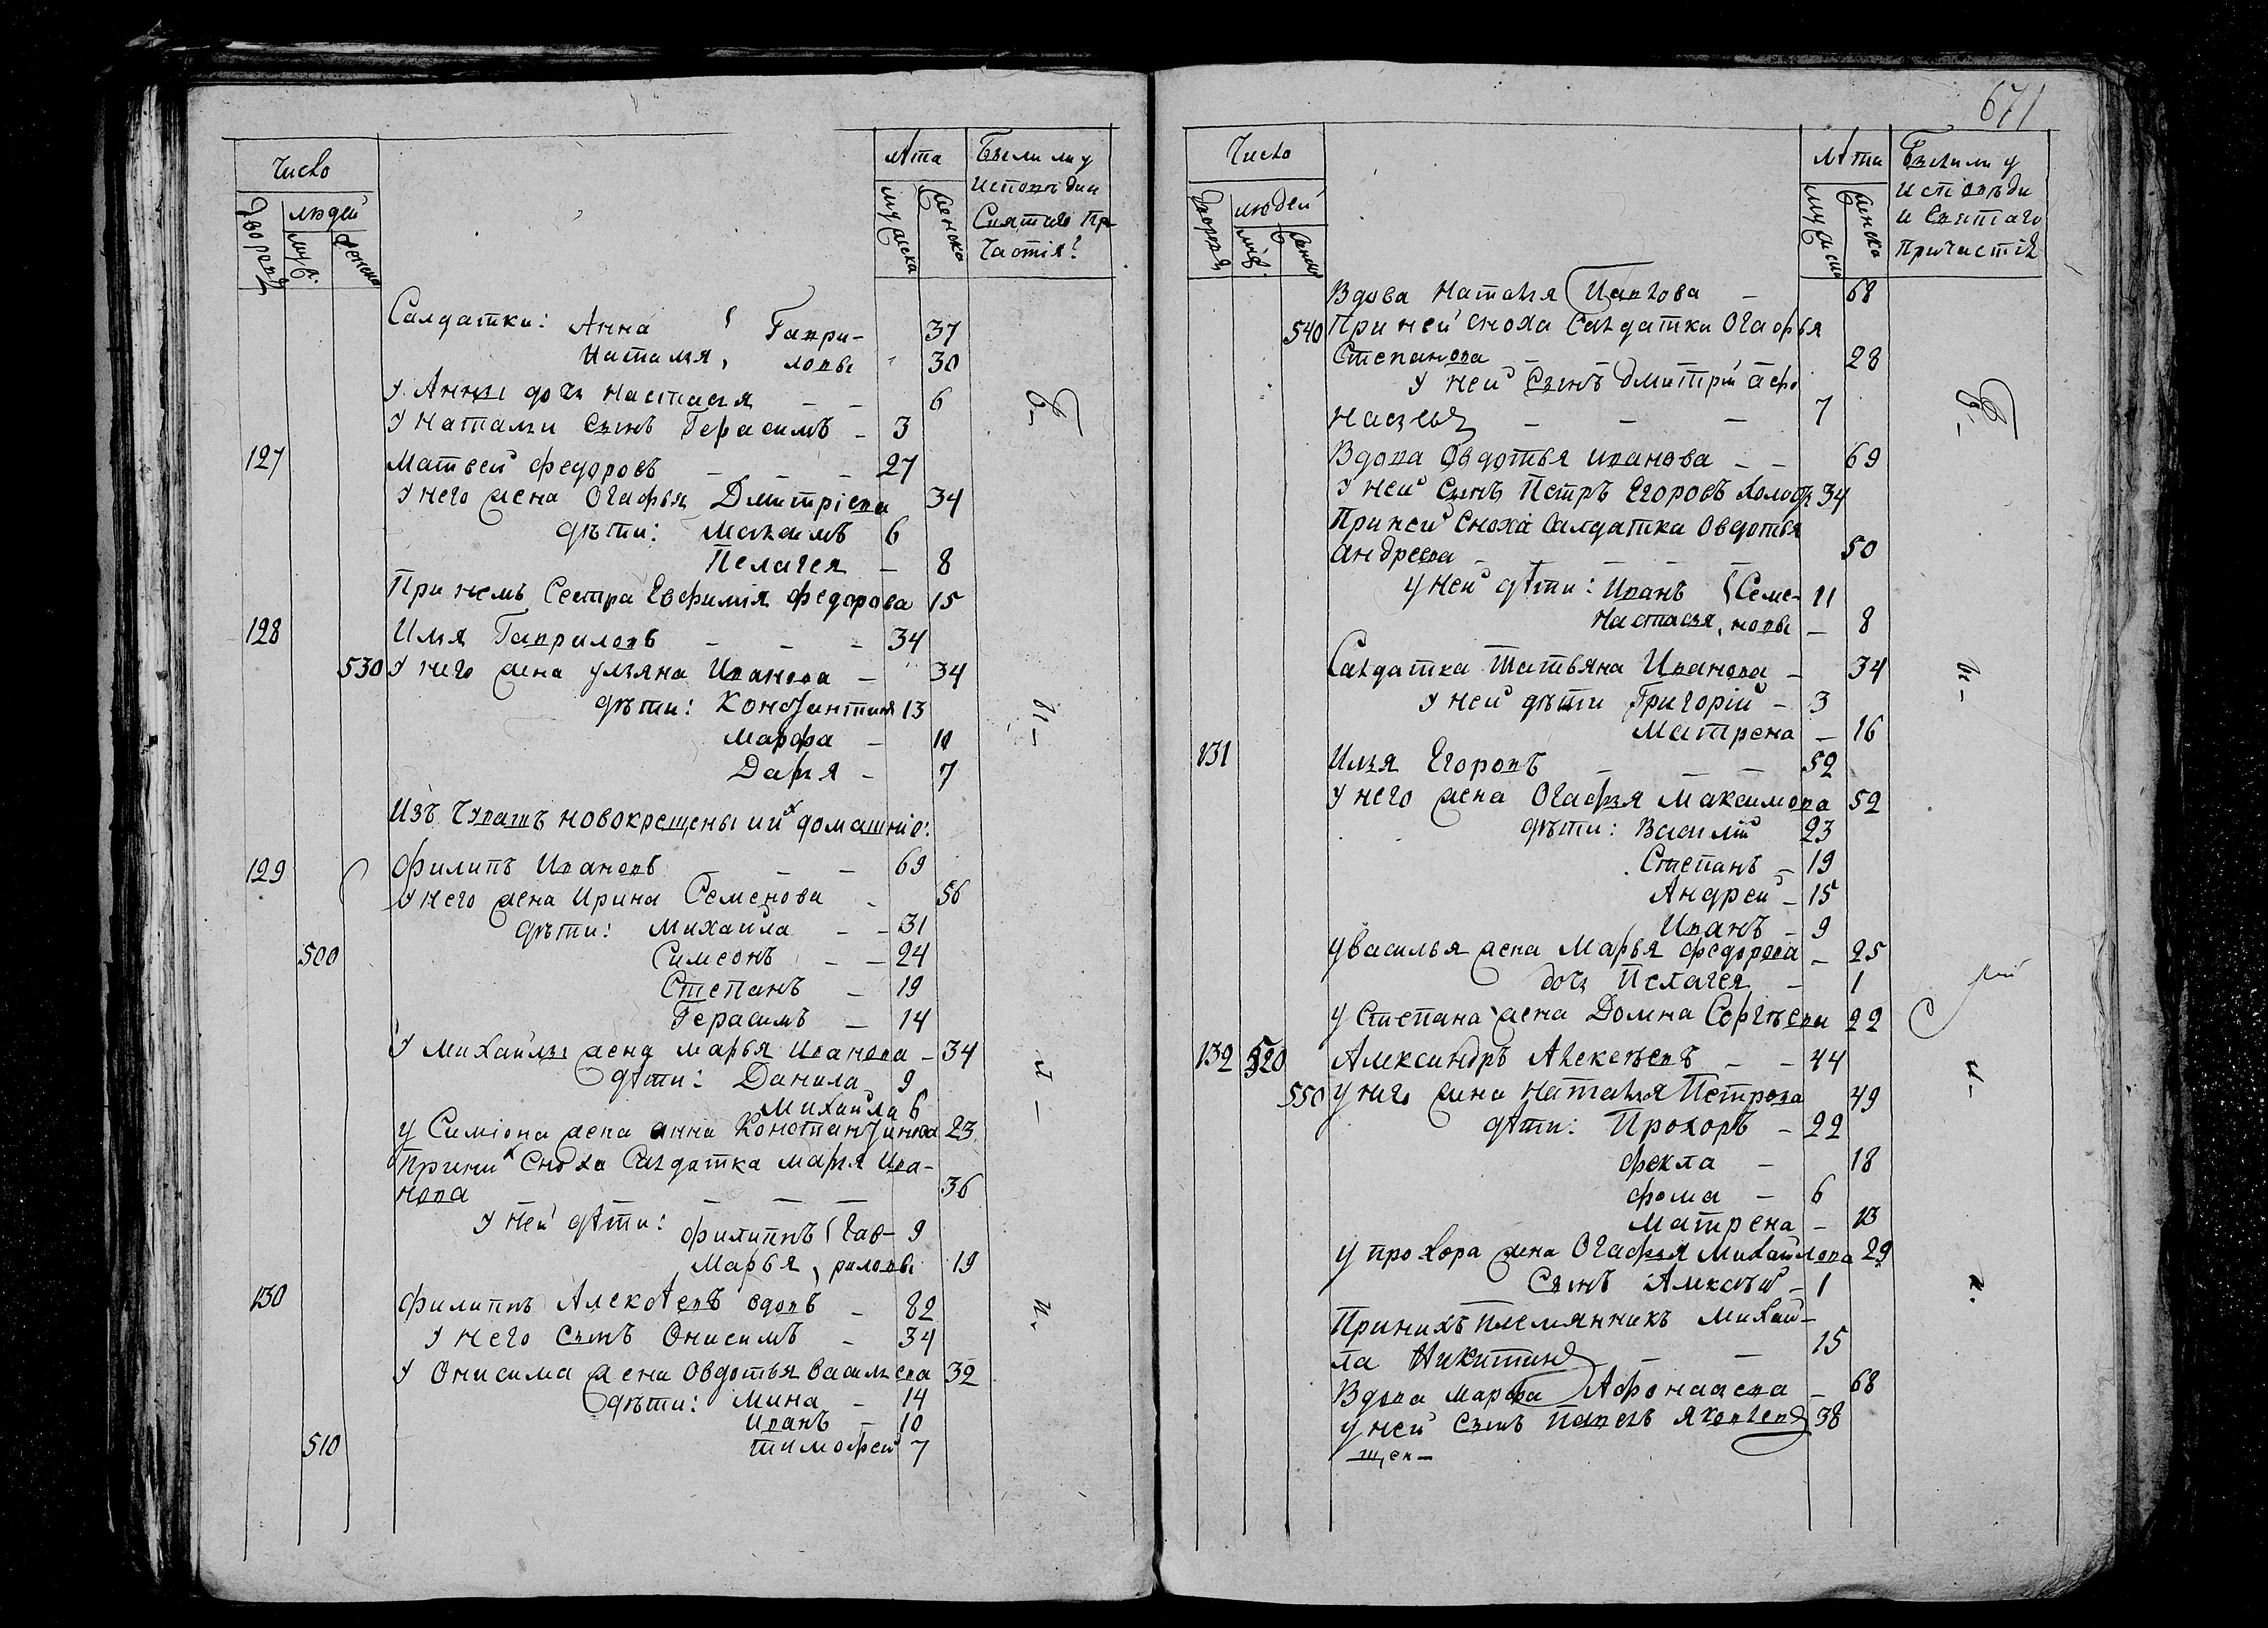 Число
лѣта
Были ли у
исповѣди и
Святаго При
частія?
дворовъ
людей
муж.
женска
мужска
женска
Салдатки: Анна Гаври- 37
Наталья, ловы 30
У Анны дочь Настасья - - 6
У Натальи Сынъ Герасимъ - 3
127 Матвей Федоровъ - - - 27
У него жена Огафья Дмитріева 34
дѣти: Максимъ 6
Пелагея - 8
При немъ Сестра Евфимія Федорова 15
128 Илья Гавриловъ - - - 34
530 У него жена Ульяна Иванова - 34
дѣти: Константинъ 13
Марфа - 10
Дарья - 7
Изъ Чувашъ новокрещеныхъ и домашніе:
129 Филипъ Ивановъ - - - 69
У него жена Ирина Семенова - 56
дѣти: Михайла - - 31
500 Симеонъ - - 24
Степанъ - 19
Герасимъ - 14
У Михайлы жена Марья Иванова - 34
дѣти: Данила 9
Михайла 6
у Симіона жена Анна Константинова 23
При них Сноха Салдатка Марья Ива-
нова - - - 36
У ней дѣти: Филиппъ Гав- 9
Марья, риловы 19
130 Филиппъ Алексѣевъ вдовъ - 82
У него Сынъ Онисимъ - 34
У Онисима жена Овдотья Васильева 32
дѣти: Мина - 14
Иванъ - 10
510 Тимофей 7
671
Число
лѣта
Были ли у
исповѣди
и Святаго
Причастія
дворовъ
людей
муж.
женск
мужска
женска
Вдова Наталья Павлова - 68
540 При ней сноха Салдатка Огафья
Степанова - - - 28
У ней Сынъ Дмитрій Афо
насьевъ - - - 7
Вдова Овдотья Иванова - - 69
У ней Сынъ Петръ Егоровъ холос. 34
При ней Сноха Салдатка Овдотья
Андреева - - - - 50
у ней дѣти: Иванъ Семе- 11
Настасья, новы - 8
Салдатка Татьяна Иванова - 34
У ней дѣти Григорій - 3
Матрена - 16
131 Илья Егоровъ - - - 52
У него жена Огафья Максимова 52
дѣти: Василій 23
Степанъ - 19
Андрей - 15
Иванъ - 9
у Василья жена Марья Федорова - 25
дочь Пелагея - 1
у Степана жена Домна Сергѣева 22
132 520 Александръ Алексѣевъ - - 44
550 у него жена Наталья Петрова 49
дѣти: Прохоръ - 22
Фекла - 18
Фома - 6
Матрена - 13
у Прохора жена Огафья Михайлова 29
Сынъ Алексѣй - 1
При нихъ племянникъ Михай-
ла Никитинъ - - 15
Вдова Марфа Афонасева - 68
у ней Сынъ Павелъ Яковлевъ 38